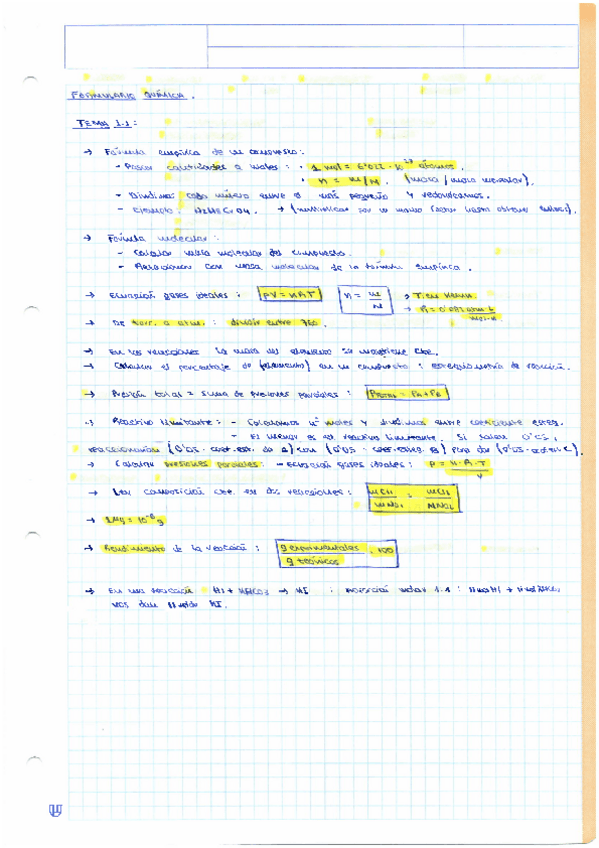 FORMULARIO QUÍMICA.
TEMA 1.1:
→ Fórmula empírica de un compuesto:
- Pasar cantidades a moles: · 1 mol = 6'022 · 10²³ átomos.
· n = m/M. (masa / masa molecular).
- Dividimos cada número entre el más pequeño y redondeamos.
- Ejemplo: → (multiplicar por un mismo factor hasta obtener enteros).
→ Fórmula molecular:
- Calcular masa molecular del compuesto.
- Relacionar con masa molecular de la fórmula empírica.
→ Ecuación gases ideales: PV = nRT n = m/M → T en Kelvin.
→ R = 0'082 atm·L/mol·K
→ De torr. a atm.: dividir entre 760.
→ En las reacciones la masa del elemento se mantiene cte.
→ Calcular el porcentaje de (elemento) en un compuesto: estequiometría de reacción.
→ Presión total = suma de presiones parciales: P = PA + PB
→ Reactivo limitante: - Calculamos nº moles y dividimos entre coeficiente esteq.
- El menor es el reactivo limitante. Si salen 0'05,
reaccionarían (0'05 · coef. est. de A) con (0'05 · coef. esteq. B) para dar (0'05 · C).
→ Calcular presiones parciales: - Ecuación gases ideales: P = n·R·T/V
→ Ley composición cte. en dos reacciones:
→ 1 µg = 10⁻⁶ g
→ Rendimiento de la reacción: g experimentales / g teóricos · 100
→ En una reacción : proporción molar 1:1 :
nos dan